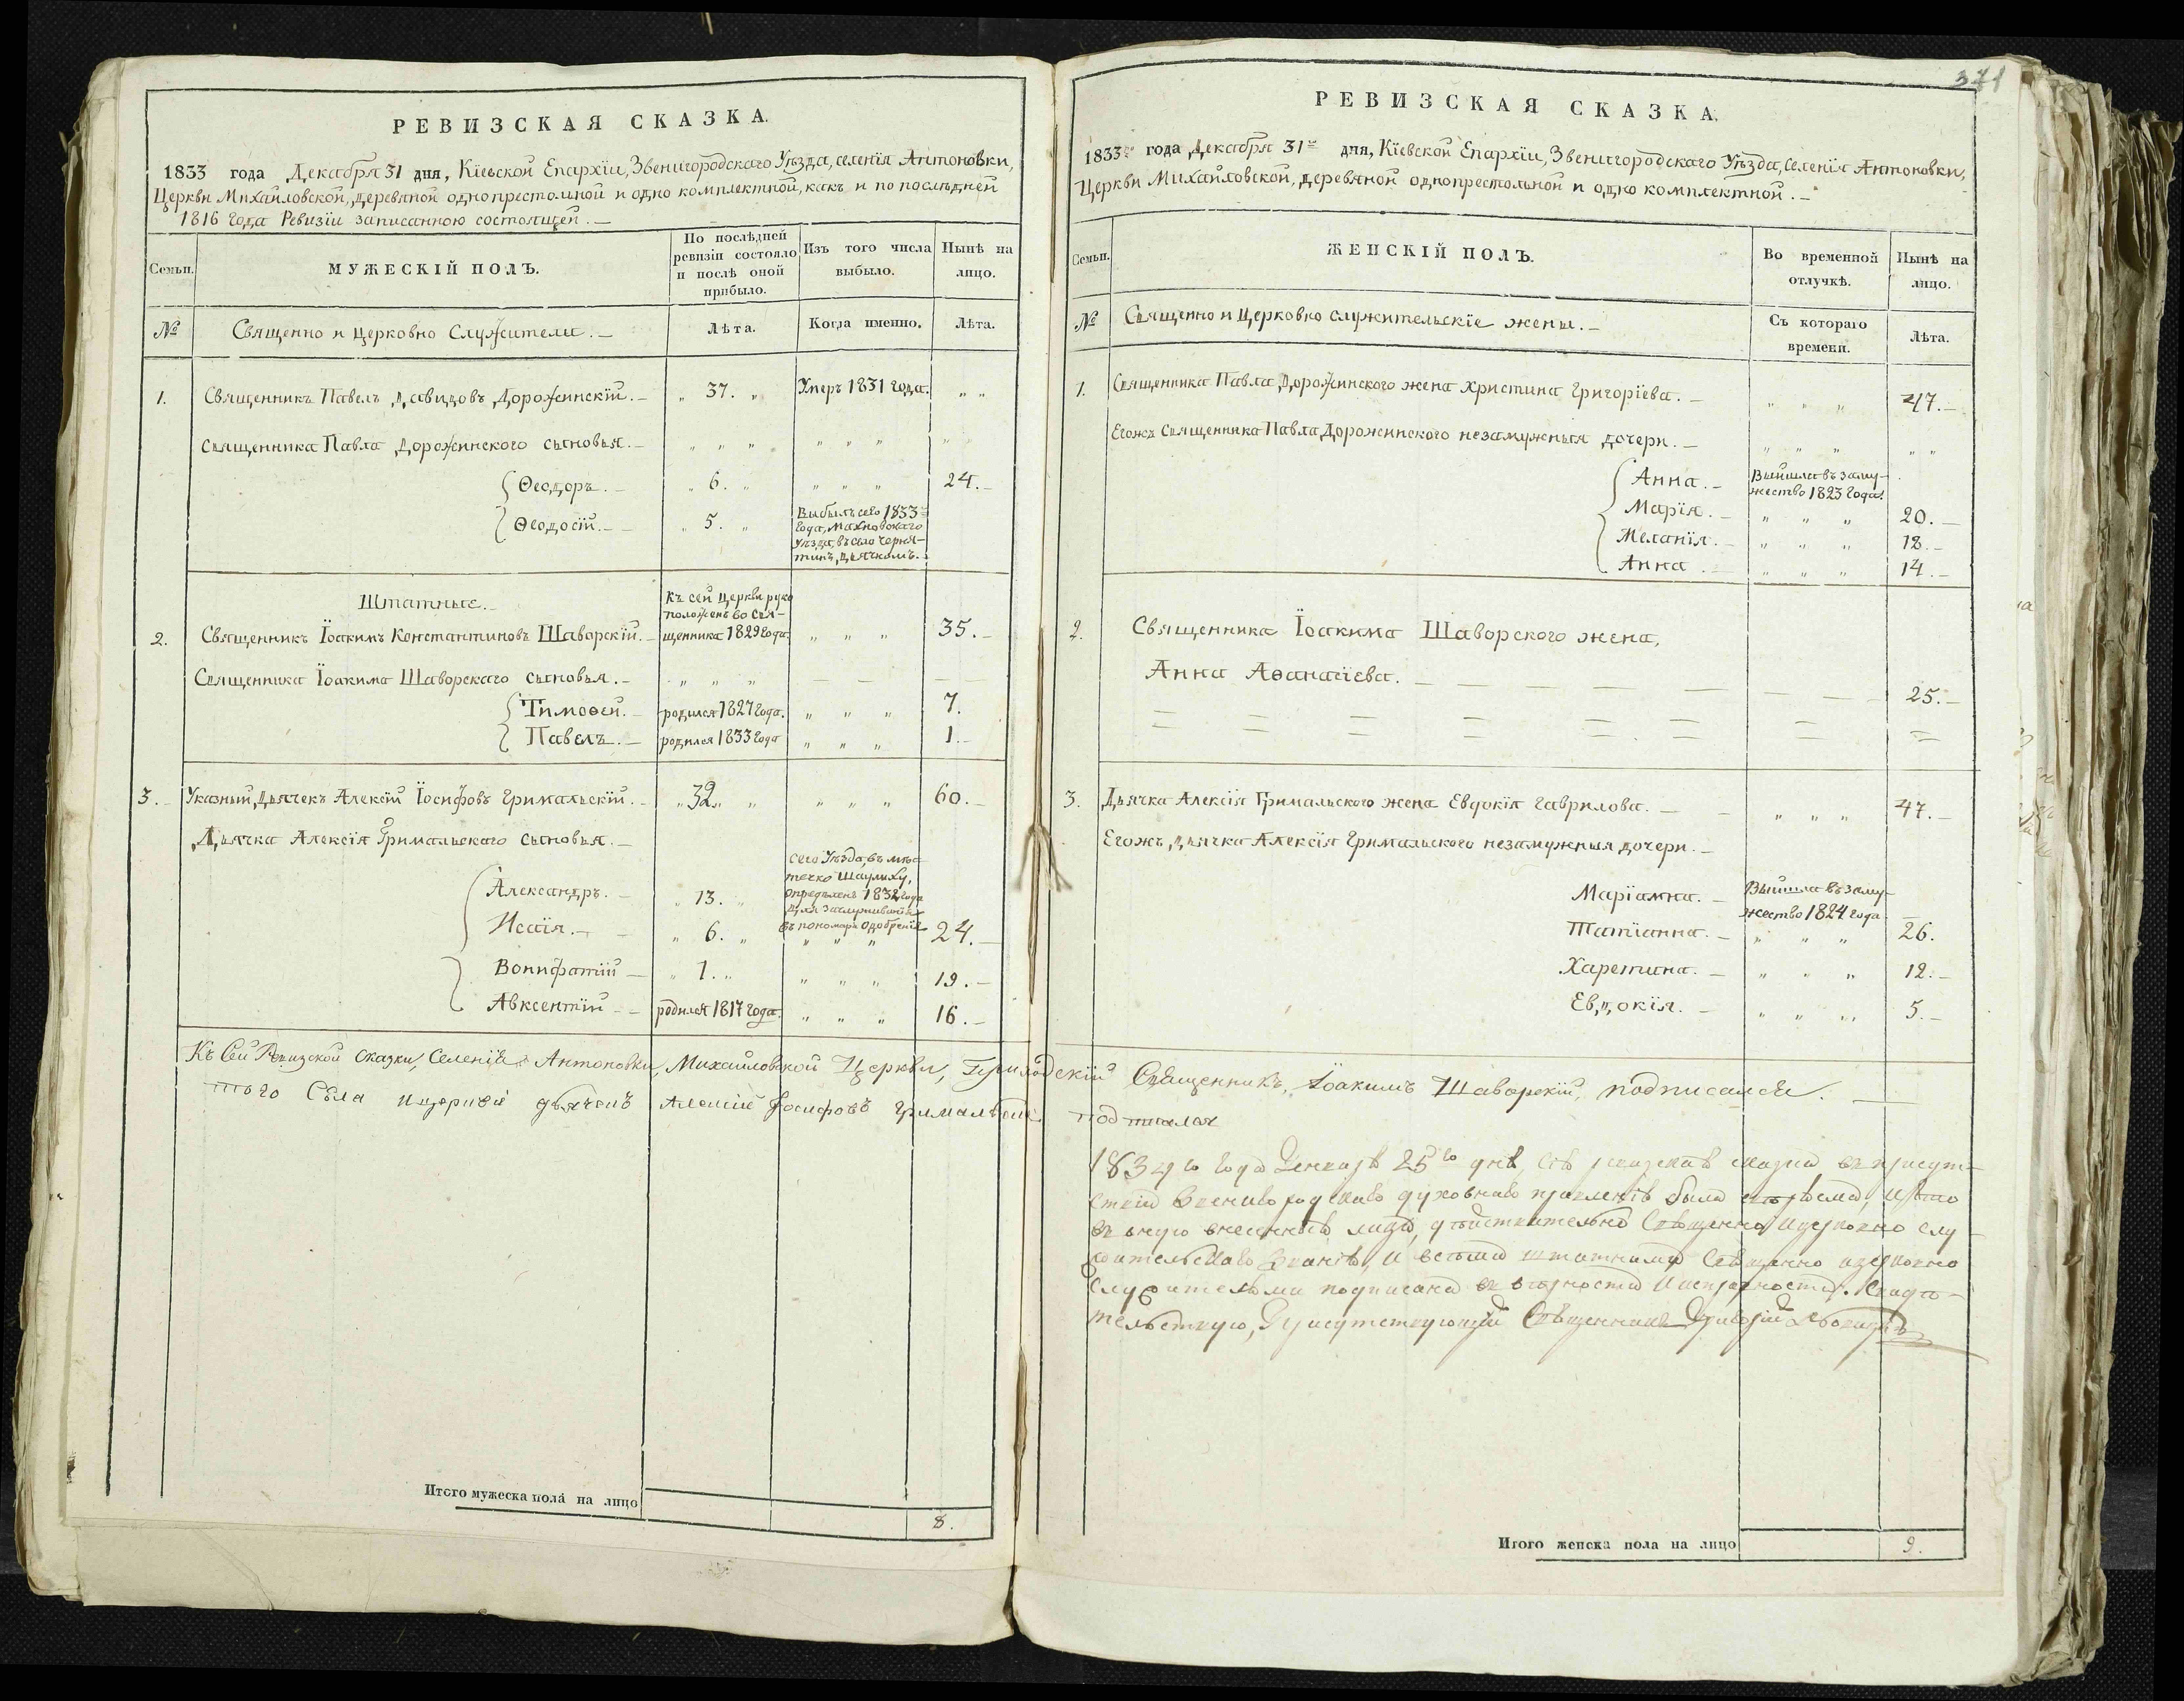 РЕВИЗСКАЯ СКАЗКА.
1833 года Декабря 31 дня, Кіевской Епархіи, Звенигородскаго Уѣзда, селенія Антоновки,
Церкви Михайловской, деревяной однопрестольной и одно комплектной, какъ и по послѣдней
1816 года Ревизіи записанною состоящей. —
Семьи.
МУЖЕСКІЙ ПОЛЪ.
По послѣдней ревизіи состояло и послѣ оной прибыло.
Изъ того числа выбыло.
Нынѣ на лицо.
№
Священно и Церковно Служители. —
Лѣта.
Когда именно.
Лѣта.
1. Священникъ Павелъ Давидовъ Дорожинскій. — „ 37. „ Умеръ 1831 года. „ „
Священника Павла Дорожинского сыновья. — „ „ „ „ „ „ „ „
Ѳеодоръ. — „ 6. „ „ „ „ 24. —
Ѳеодосій. — „ 5. „ Выбылъ сего 1833
года, Махновскаго
уѣзда, въ село Черня-
тинъ, дьячкомъ. —
Штатные. —
Къ сей Церкви руко
положенъ во Свя-
2. Священникъ Іоакимъ Константиновъ Шаворскій. — щенника 1829 года. „ „ „ 35. —
Священника Іоакима Шаворскаго сыновья. — „ „ „ — — — —
Тимоѳей. — родился 1827 года. „ „ „ 7.
Павелъ. — родился 1833 года „ „ „ 1. —
3. Указный дьячекъ Алексій Іосифовъ Гримальскій. — „ 32 „ „ „ „ „ 60. —
Дьячка Алексія Гримальскаго сыновья. —
Александръ. — „ 13. „ Сего Уѣзда, въ мѣс
течко Шаулиху,
опредѣленъ 1832 года
для заслуживанія
въ пономаря одобренія
Исаія. — „ 6. „ „ „ „ 24. —
Вонифатій — „ 1. „ „ „ „ 19. —
Авксентій — родился 1817 года. „ „ „ 16. —
Къ сей Ревизской сказки, Селенія Антоновки, Михайловской Церкви, Приходскій Священникъ, Іоакимъ Шаворскій, подписался. —
того Села дьячокъ Алексій Іосифовъ Грималскій подписалея
Итого мужеска пола на лицо
8.
371
РЕВИЗСКАЯ СКАЗКА.
1833го года Декабря 31го дня, Кіевской Епархіи, Звенигородскаго Уѣзда, Селенія Антоновки,
Церкви Михайловской, деревяной однопрестольной и одно комплектной. —
Семьи.
ЖЕНСКІЙ ПОЛЪ.
Во временной отлучкѣ.
Нынѣ на лицо.
№
Священно и Церковно служительскіе жены. —
Съ котораго времени.
Лѣта.
1. Священника Павла Дорожинского жена Христина Григоріева. — „ „ „ 47. —
Егожъ Священника Павла Дорожинского незамужныя дочери. — „ „ „ „ „
Анна. — Вышла въ заму-
жество 1823 года.
Марія. — „ „ „ 20. —
Меланія. — „ „ „ 18. —
Анна. — „ „ „ 14. —
2. Священника Іоакима Шаворского жена,
Анна Аѳанасіева. — — — — — — — 25. —
3. Дьячка Алексія Гримальского жена Евдокія Гаврилова. — „ „ „ 47. —
Егожъ, дьячка Алексія Гримальского незамужныя дочери. —
Маріанна. — Вышла въ заму-
жество 1824 года
Татіанна. — „ „ „ 26.
Харетина. — „ „ „ 12. —
Евдокія. — „ „ „ 5. —
1834го года Генваря 25го дня, сія ревизская сказка въ присут-
ствіи духовнаго правленія была
въ оную внесенныя лица, дѣйствительно Священно и церковно слу
жительскаго званія, и всѣми штатными Священно церковно
служителями подписана въ вѣрности и исправности. Свидѣ-
тельствую, Присутствующій Священникъ
Итого женска пола на лицо
9.